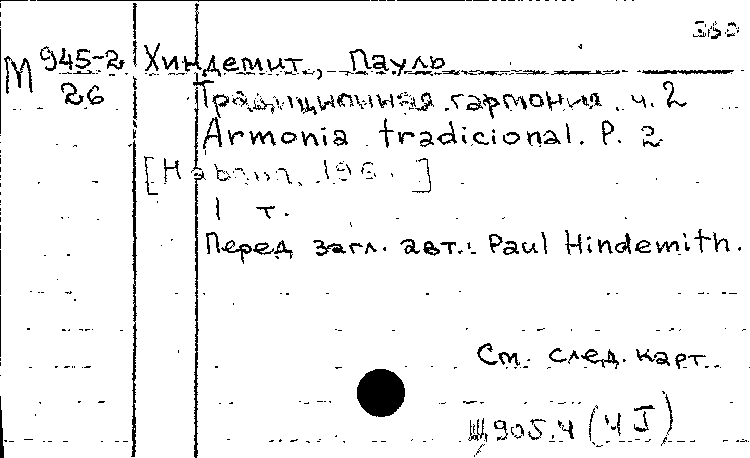 360
М 945-2 Хиндемит, Пауль
26 Традиционная гармония. ч. 2
Armonia tradicional. P. 2
[Habana, 196. ]
1 т.
Перед загл. авт.: Paul Hindemith.
См. след. карт.
Щ905.4 (4 J)